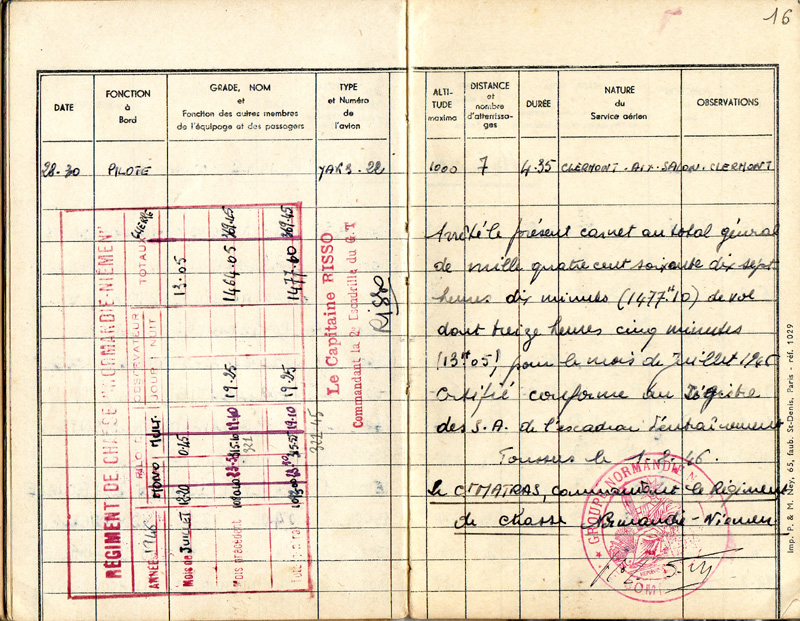 16
DATE
FONCTION
à
Bord
GRADE, NOM
et
Fonction des autres membres
de l'équipage et des passagers
TYPE
et Numéro
de
l'avion
ALTI-
TUDE
maxima
DISTANCE
et
nombre
d'atterrissa-
ges
DURÉE
NATURE
du
Service aérien
OBSERVATIONS
28.30 PILOTE YAK3.22 1000 7 4.35 CLERMONT-AIX-SALON-CLERMONT
Arrêté le présent carnet au total général
de mille quatre cent soixante dix sept
heures dix minutes (1477H10) de vol
dont treize heures cinq minutes
(13H05) pour le mois de Juillet
Certifié conforme au
des S.A. de l'escadron d'entraînement
Toussus le
Le Ct MATRAS, commandant le Régiment
de chasse Normandie-Niemen
GROUPE NORMANDIE
RÉGIMENT DE CHASSE "NORMANDIE-NIÉMEN"
ANNÉE 1946
PILOTE
MONO
MULT.
OBSERVATEUR
JOUR
NUIT
TOTAUX
GUERRE
Mois de JUILLET
0.45
13.05
Mois précédent
19.10
19.25
1464.05
369.45
321
19.10
19.25
1477.10
369.45
321.45
Le Capitaine RISSO
Commandant la 2e Escadrille du G.T
Risso
Imp. P. & M. Ney, 65, faub. St-Denis, Paris - réf. 1029